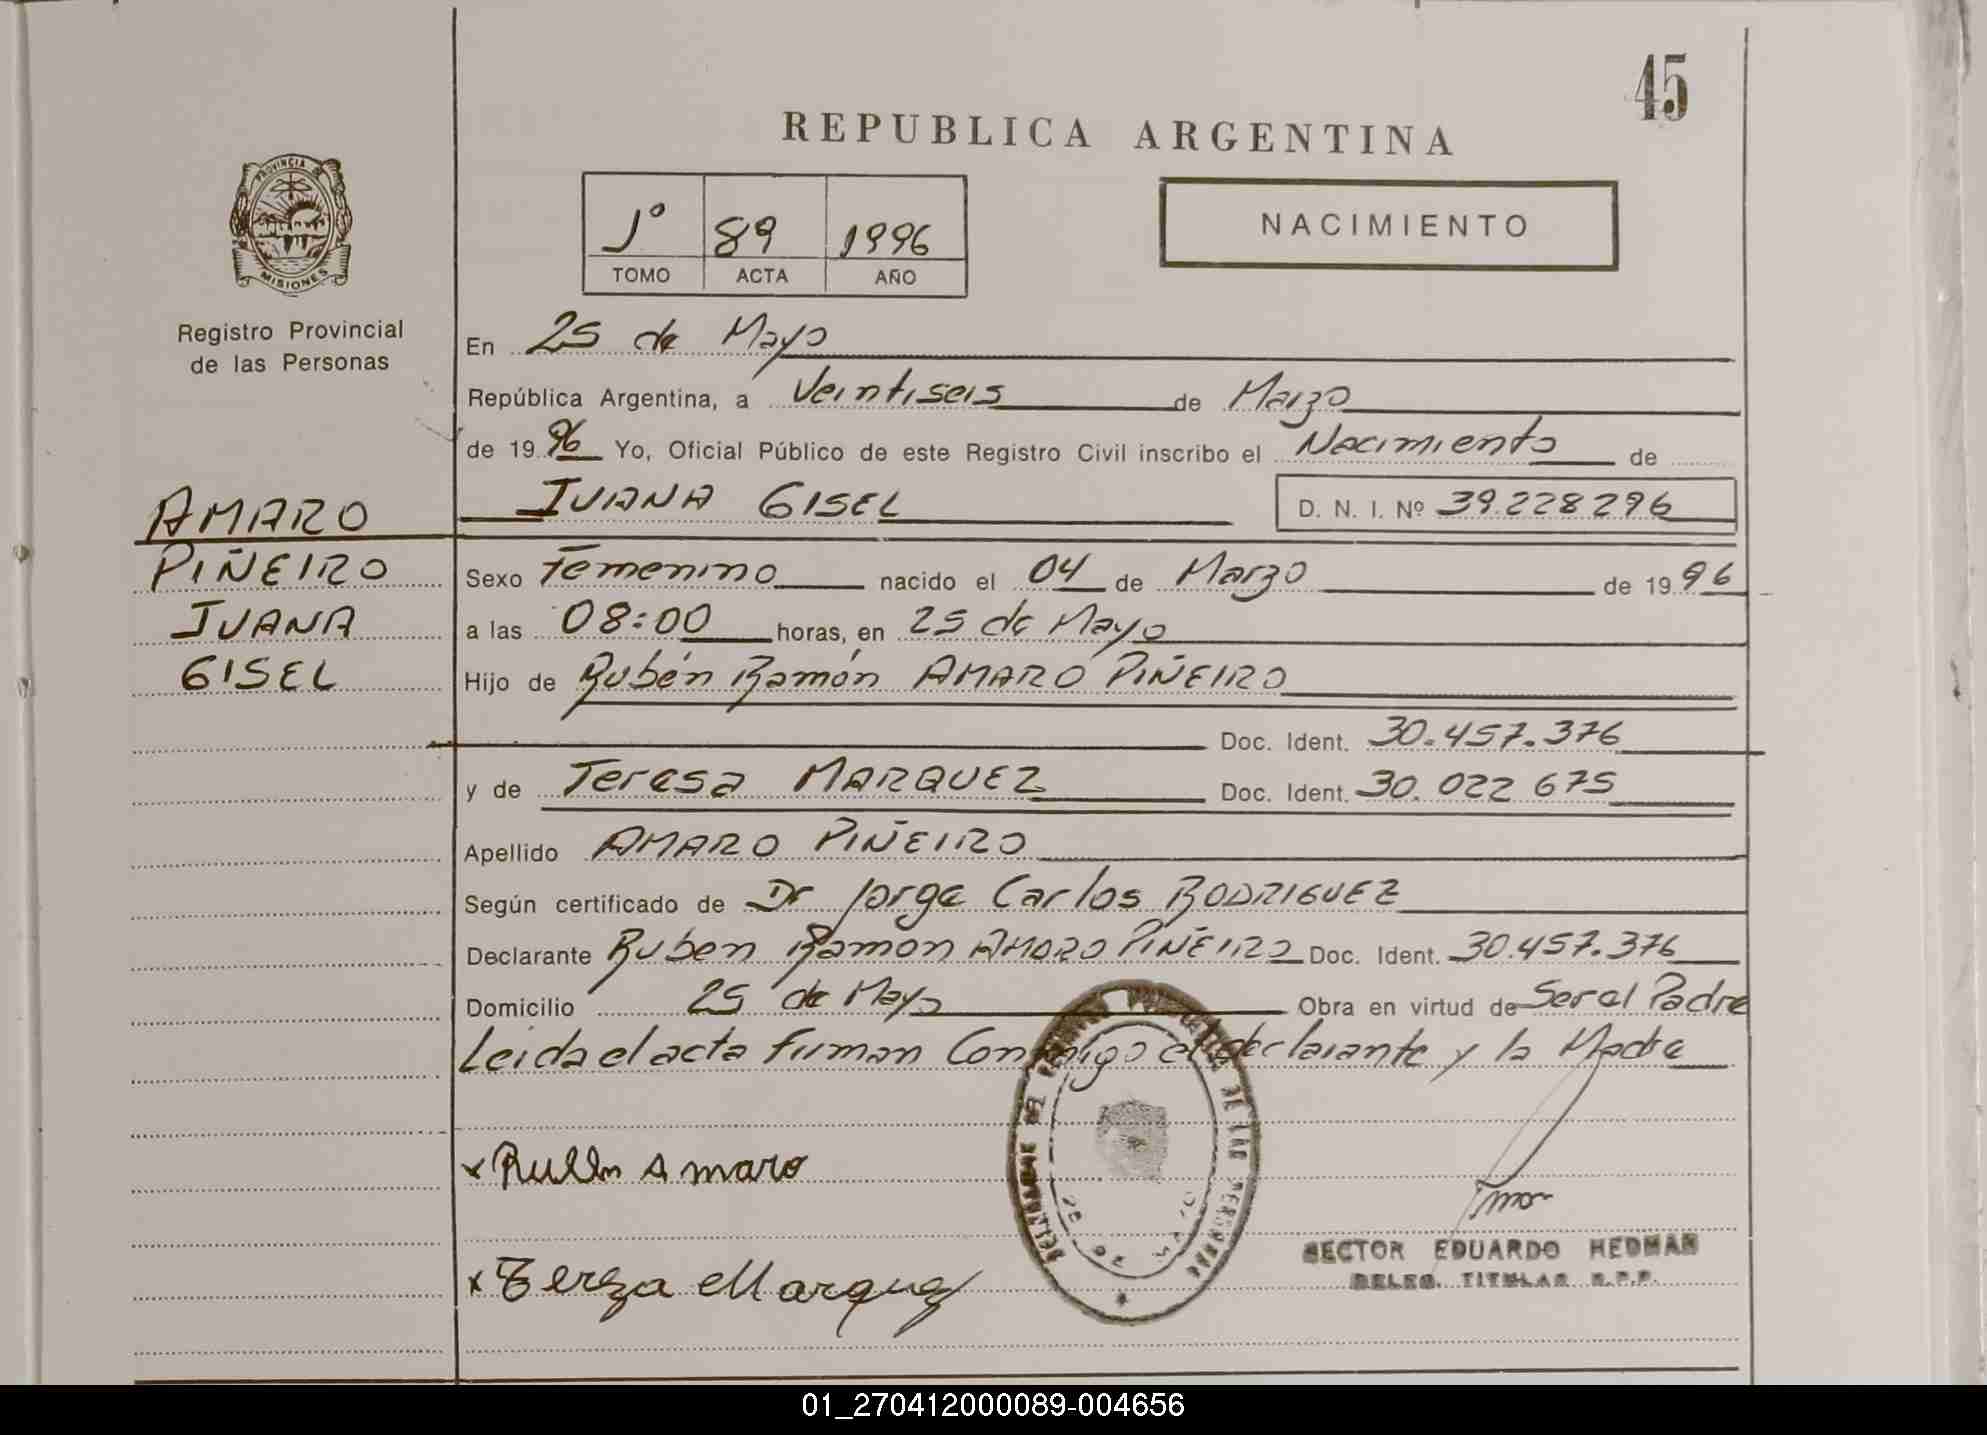 45
REPUBLICA ARGENTINA
PROVINCIA
MISIONES
1º 89 1996
TOMO ACTA AÑO
NACIMIENTO
Registro Provincial
de las Personas
En 25 de Mayo
República Argentina, a Veintiseis de Marzo
de 1996 Yo, Oficial Público de este Registro Civil inscribo el Nacimiento de
JUANA GISEL D. N. I. Nº 39.228296
AMARO
PIÑEIRO
JUANA
GISEL
Sexo Femenino nacido el 04 de Marzo de 1996
a las 08:00 horas, en 25 de Mayo
Hijo de Rubén Ramón AMARO PIÑEIRO
Doc. Ident. 30.457.376
y de Teresa MARQUEZ Doc. Ident. 30.022 675
Apellido AMARO PIÑEIRO
Según certificado de Dr Jorge Carlos RODRIGUEZ
Declarante Ruben Ramon AMARO PIÑEIRO Doc. Ident. 30.457.376
Domicilio 25 de Mayo Obra en virtud de Ser el Padre
Leida el acta firman Conmigo el declarante y la Madre
x Rubén Amaro
x Tereza Marquez
DE LAS PERSONAS
HECTOR EDUARDO HEDMAN
DELEG. TITULAR R.P.P.
01_270412000089-004656